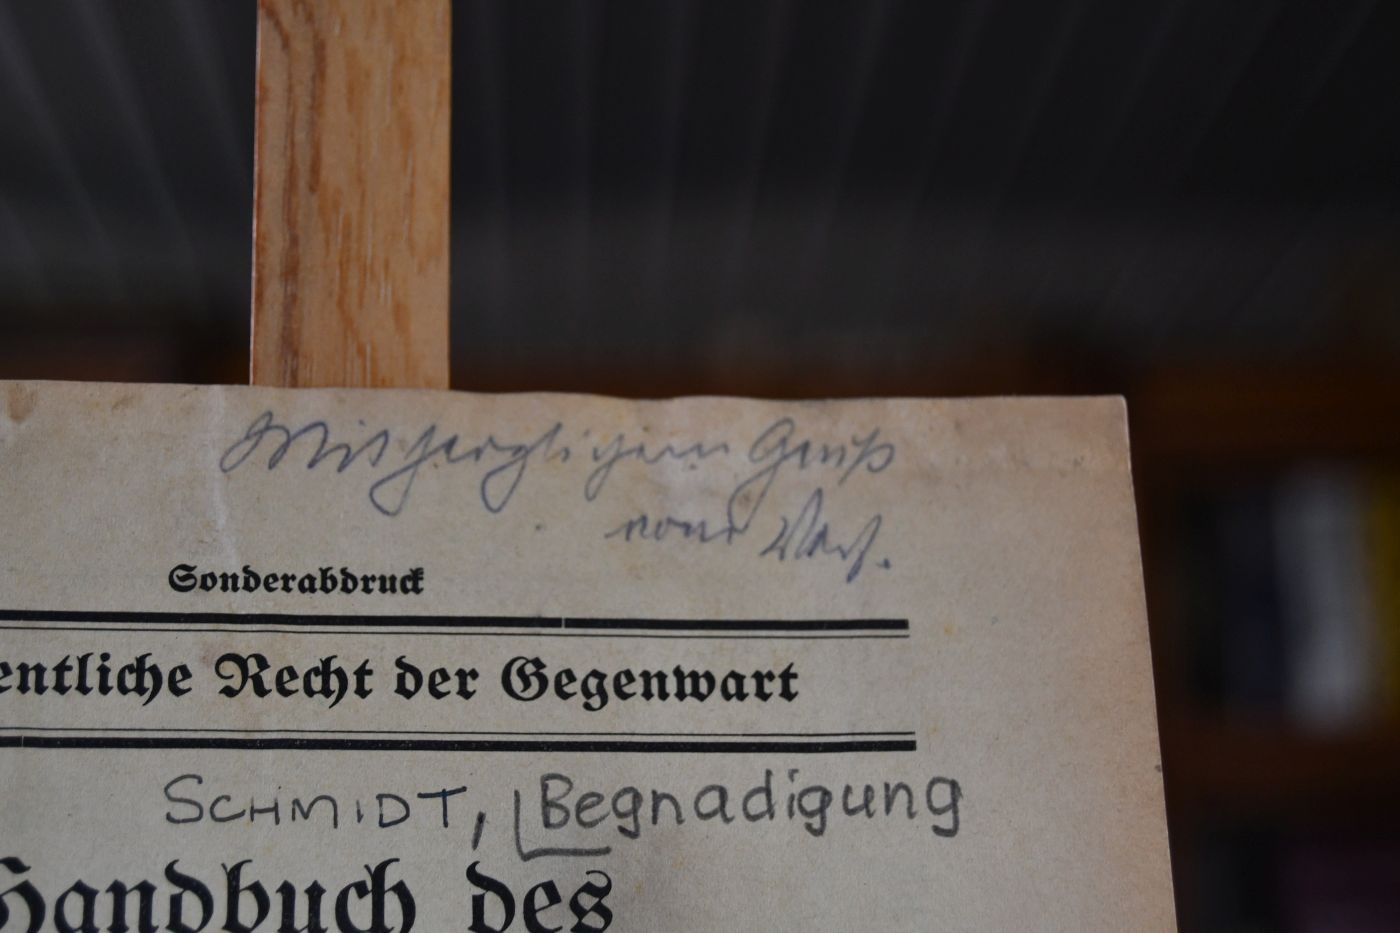 Mit herzlichem Gruß
vom Verf.
Sonderabdruck
entliche Recht der Gegenwart
SCHMIDT, Begnadigung
Handbuch des